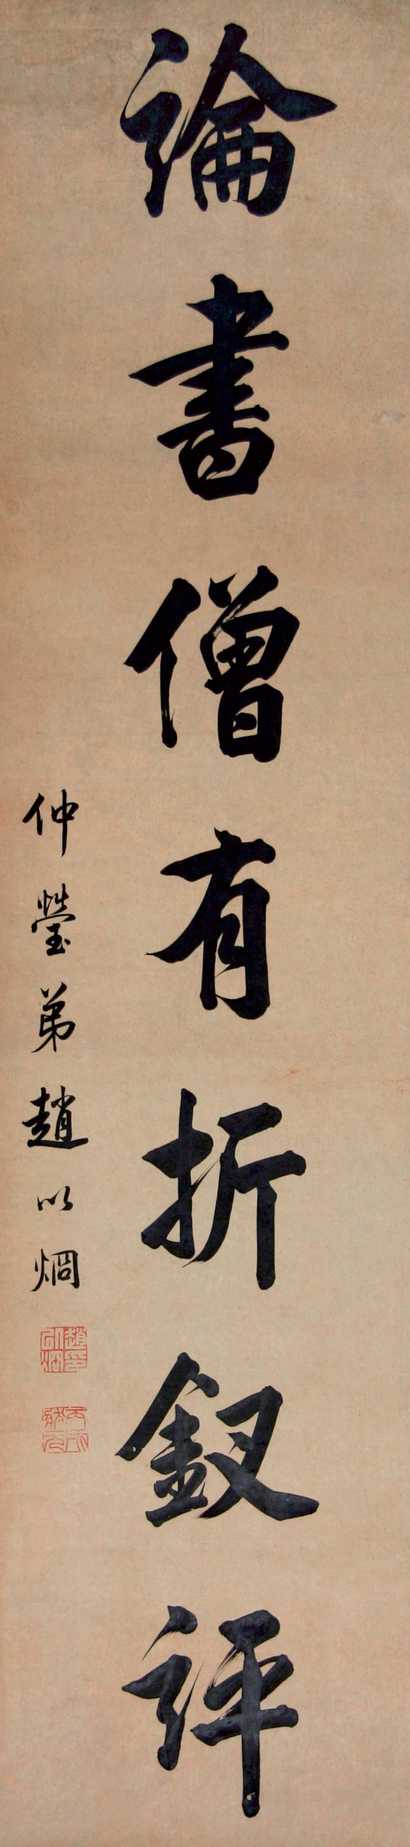 論書僧有折釵評
仲瑩弟趙以烱